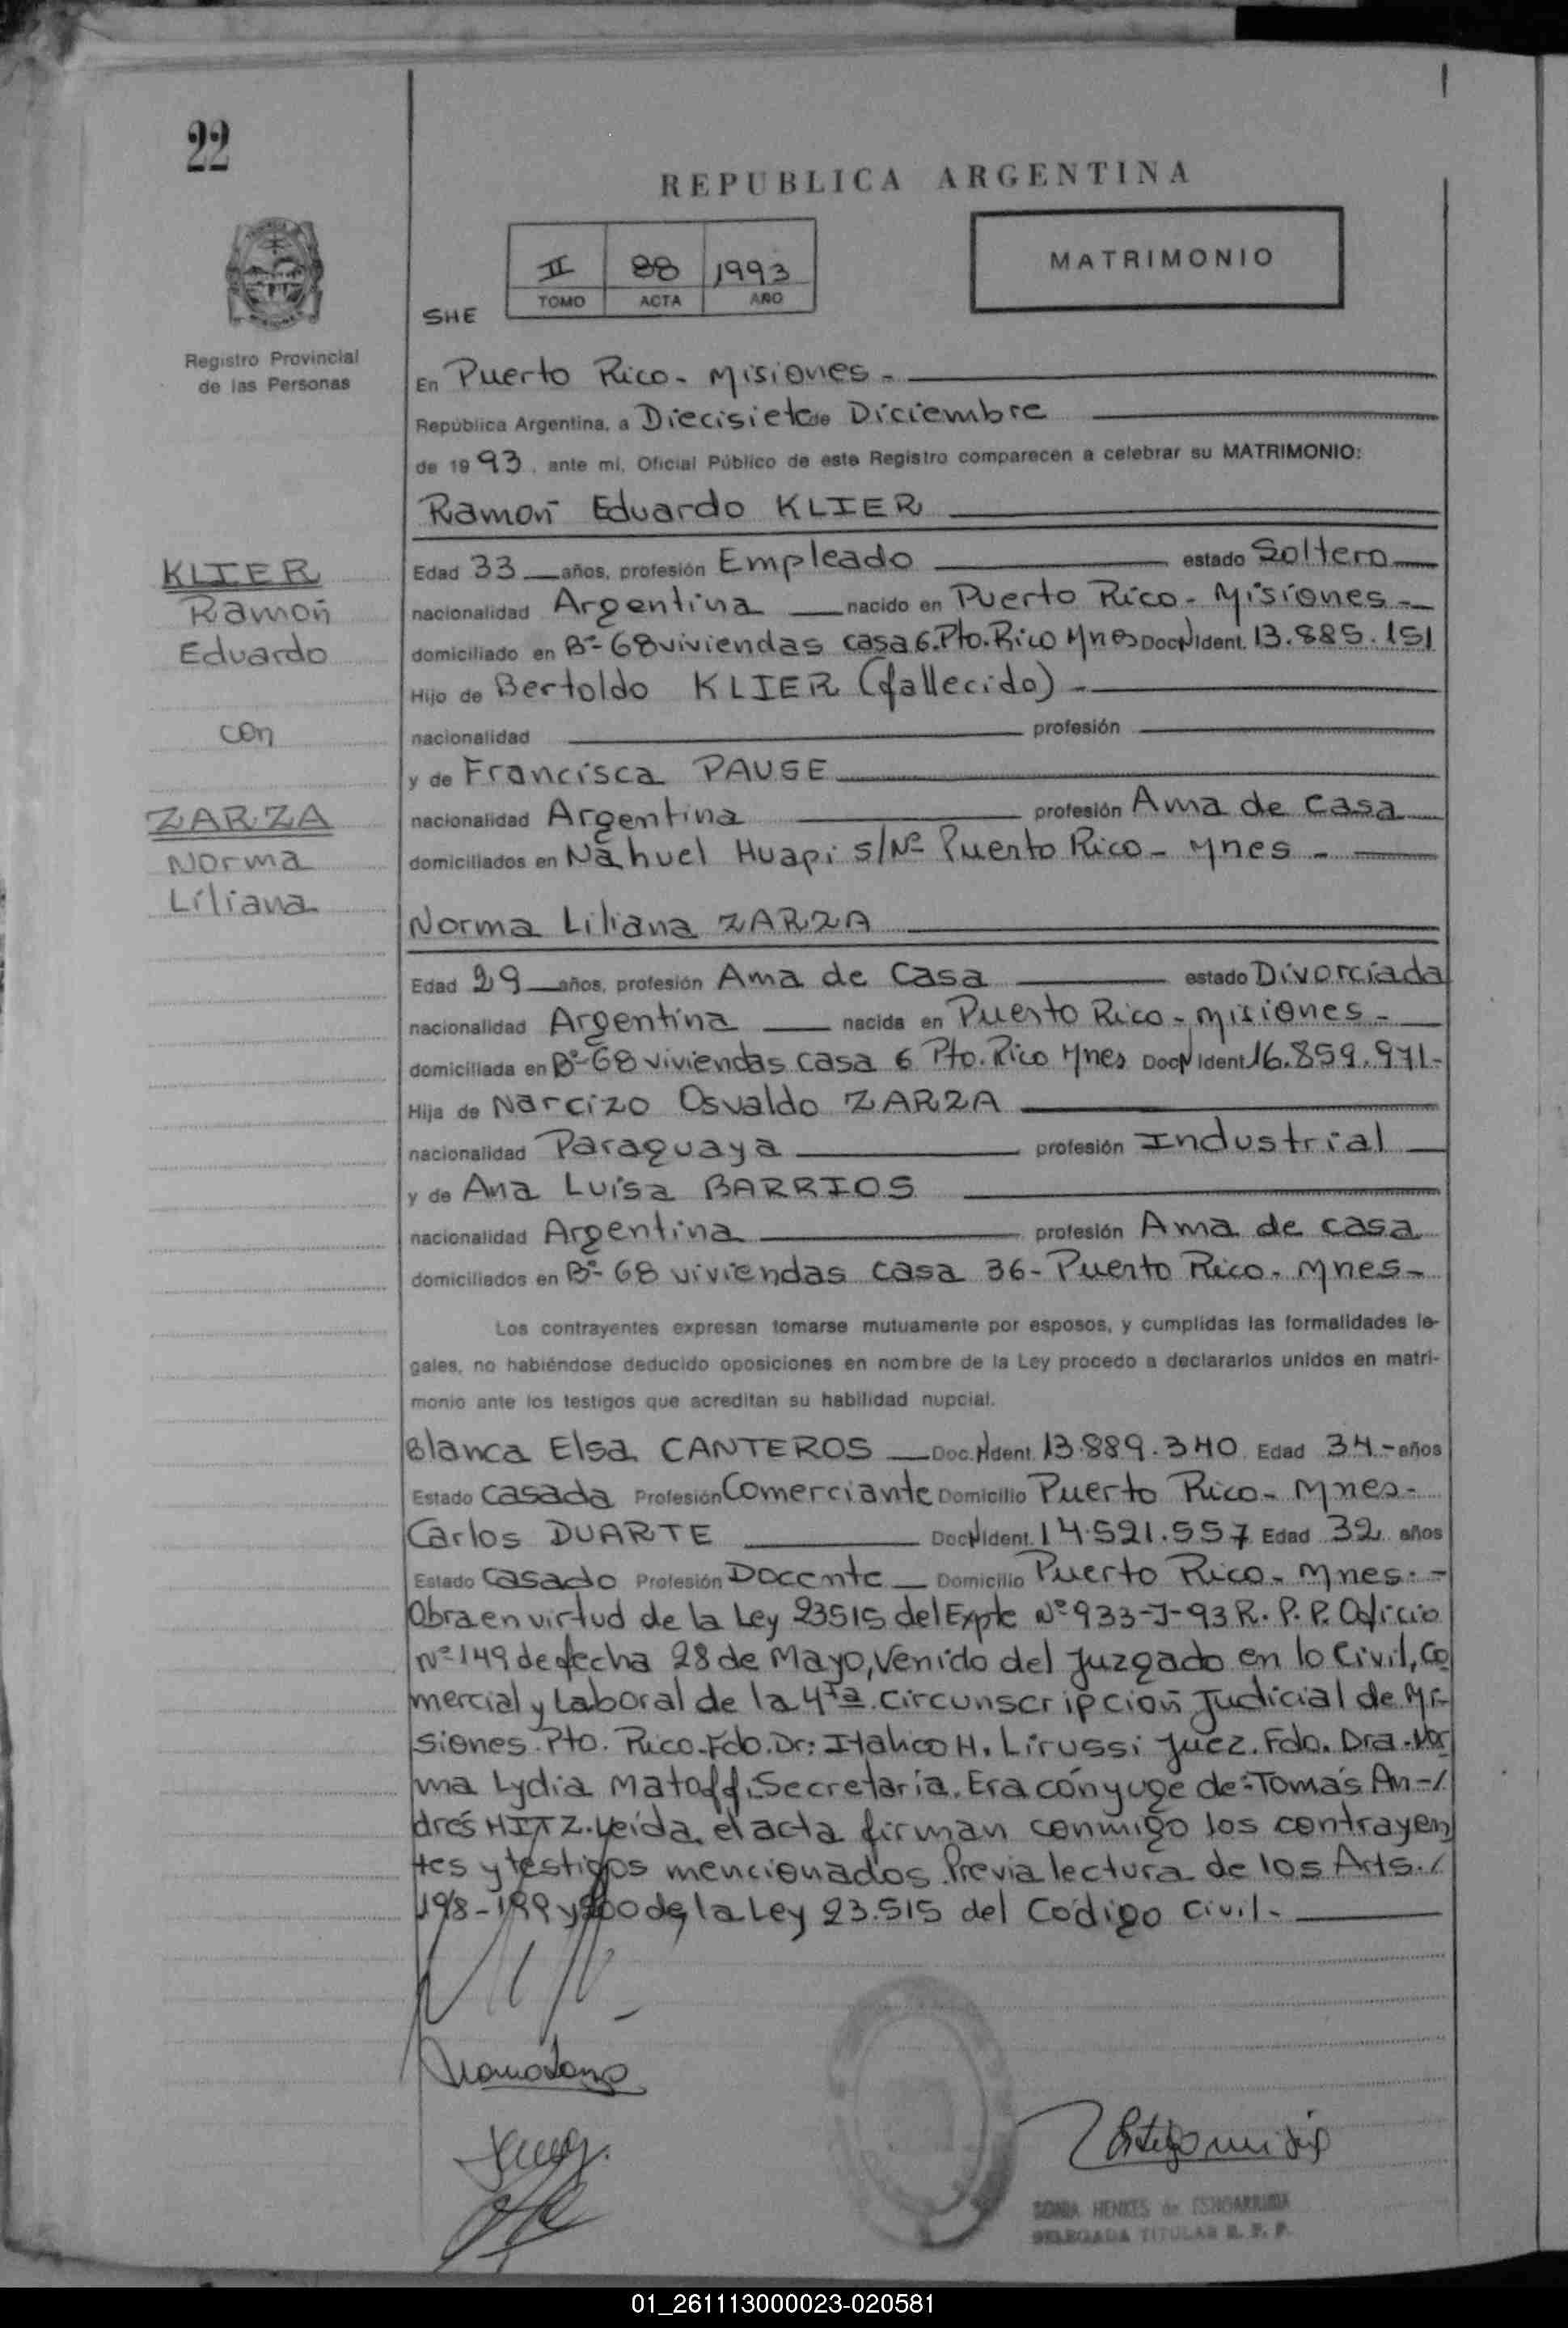 22
REPUBLICA ARGENTINA
II 88 1993
TOMO ACTA AÑO
MATRIMONIO
SHE
Registro Provincial
de las Personas
En Puerto Rico - Misiones -
República Argentina, a Diecisiete de Diciembre
de 19 93, ante mi, Oficial Público de este Registro comparecen a celebrar su MATRIMONIO:
Ramón Eduardo KLIER
KLIER
Ramón
Eduardo
con
ZARZA
Norma
Liliana
Edad 33 años, profesión Empleado estado Soltero
nacionalidad Argentina nacido en Puerto Rico - Misiones -
domiciliado en Bº- 68 viviendas casa 6. Pto. Rico Mnes Doc N Ident. 13.885.151
Hijo de Bertoldo KLIER (fallecido) -
nacionalidad profesión
y de Francisca PAUSE
nacionalidad Argentina profesión Ama de casa
domiciliados en Nahuel Huapi s/Nº Puerto Rico - Mnes -
Norma Liliana ZARZA
Edad 29 años, profesión Ama de Casa estado Divorciada
nacionalidad Argentina nacida en Puerto Rico - Misiones -
domiciliada en Bº- 68 viviendas casa 6 Pto. Rico Mnes Doc N Ident 16.859.971-
Hija de Narcizo Osvaldo ZARZA
nacionalidad Paraguaya profesión Industrial
y de Ana Luisa BARRIOS
nacionalidad Argentina profesión Ama de casa
domiciliados en Bº- 68 viviendas casa 36 - Puerto Rico - Mnes -
Los contrayentes expresan tomarse mutuamente por esposos, y cumplidas las formalidades le-
gales, no habiéndose deducido oposiciones en nombre de la Ley procedo a declararlos unidos en matri-
monio ante los testigos que acreditan su habilidad nupcial.
Blanca Elsa CANTEROS Doc. N Ident. 13.889.340 Edad 34.- años
Estado casada Profesión Comerciante Domicilio Puerto Rico - Mnes -
Carlos DUARTE Doc N Ident. 14.521.557 Edad 32 años
Estado casado Profesión Docente Domicilio Puerto Rico - Mnes. -
Obra en virtud de la Ley 23515 del Expte Nº 933-J-93 R. P. P. Oficio
Nº 149 de fecha 28 de Mayo, Venido del Juzgado en lo Civil, Co
mercial y Laboral de la 4ta. circunscripción Judicial de Mi-
siones. Pto. Rico. Fdo. Dr: Italico H. Lirussi Juez. Fdo. Dra. Nor
ma Lydia Matoff. Secretaria. Era cónyuge de: Tomás An-/
drés HITZ. Leída el acta firman conmigo los contrayen
tes y testigos mencionados. Previa lectura de los Arts. /
198-199 y 200 de la Ley 23.515 del Código Civil -
SONIA HENKES de
DELEGADA TITULAR R. P. P.
01_261113000023-020581